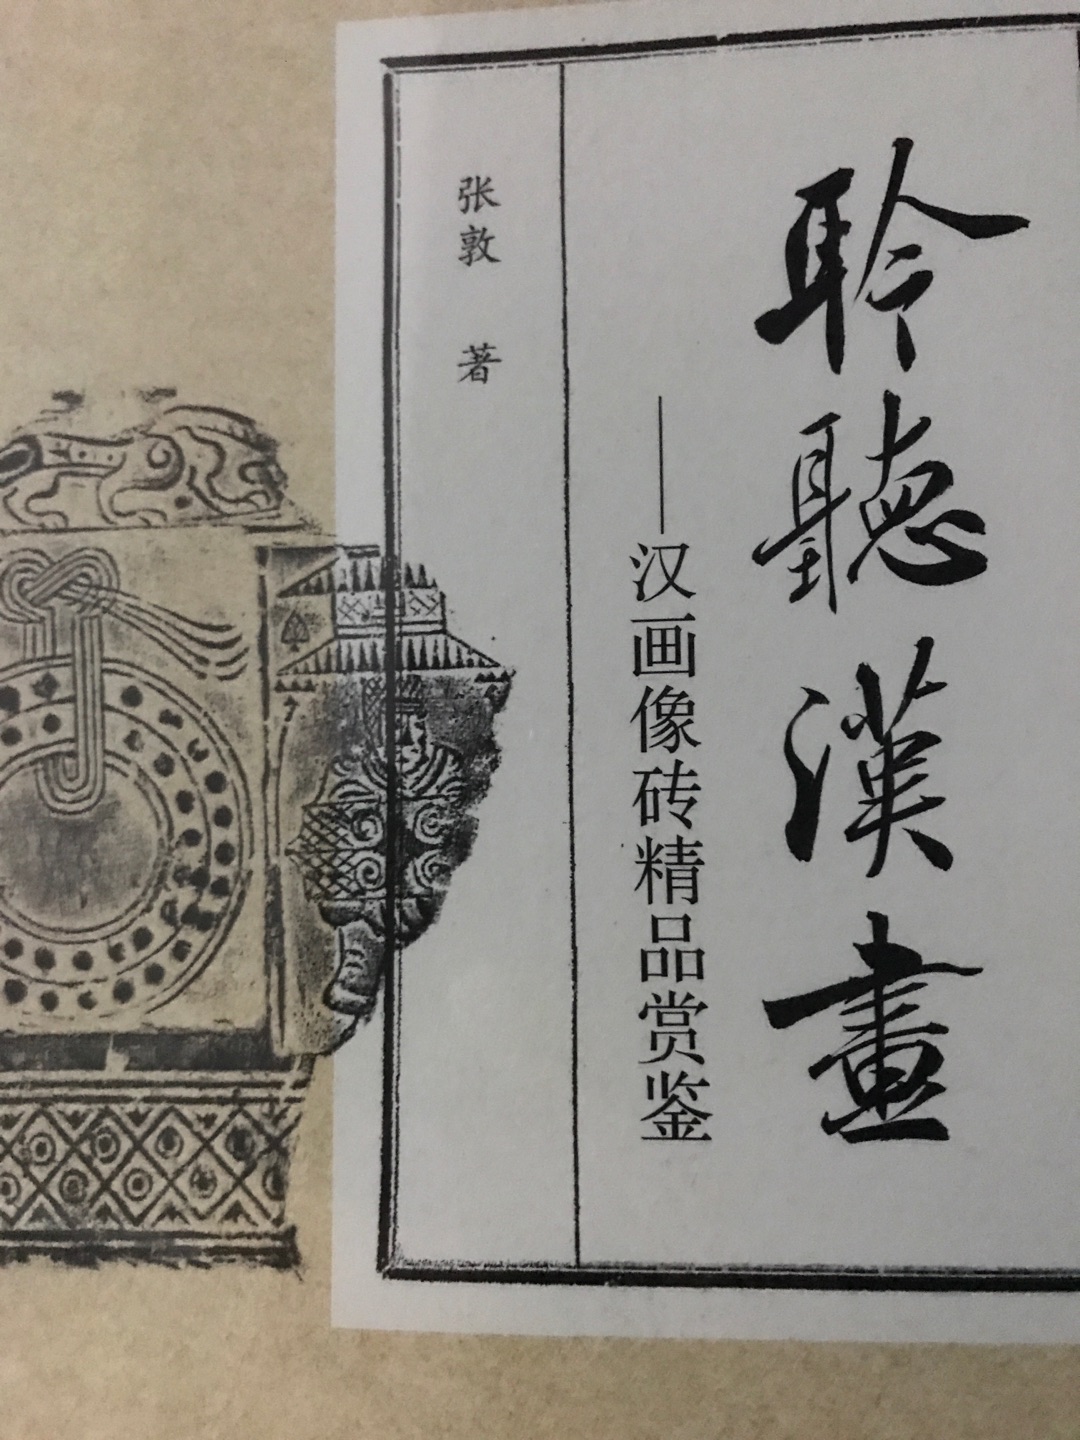 聆聽漢畫
——汉画像砖精品赏鉴
张敦 著